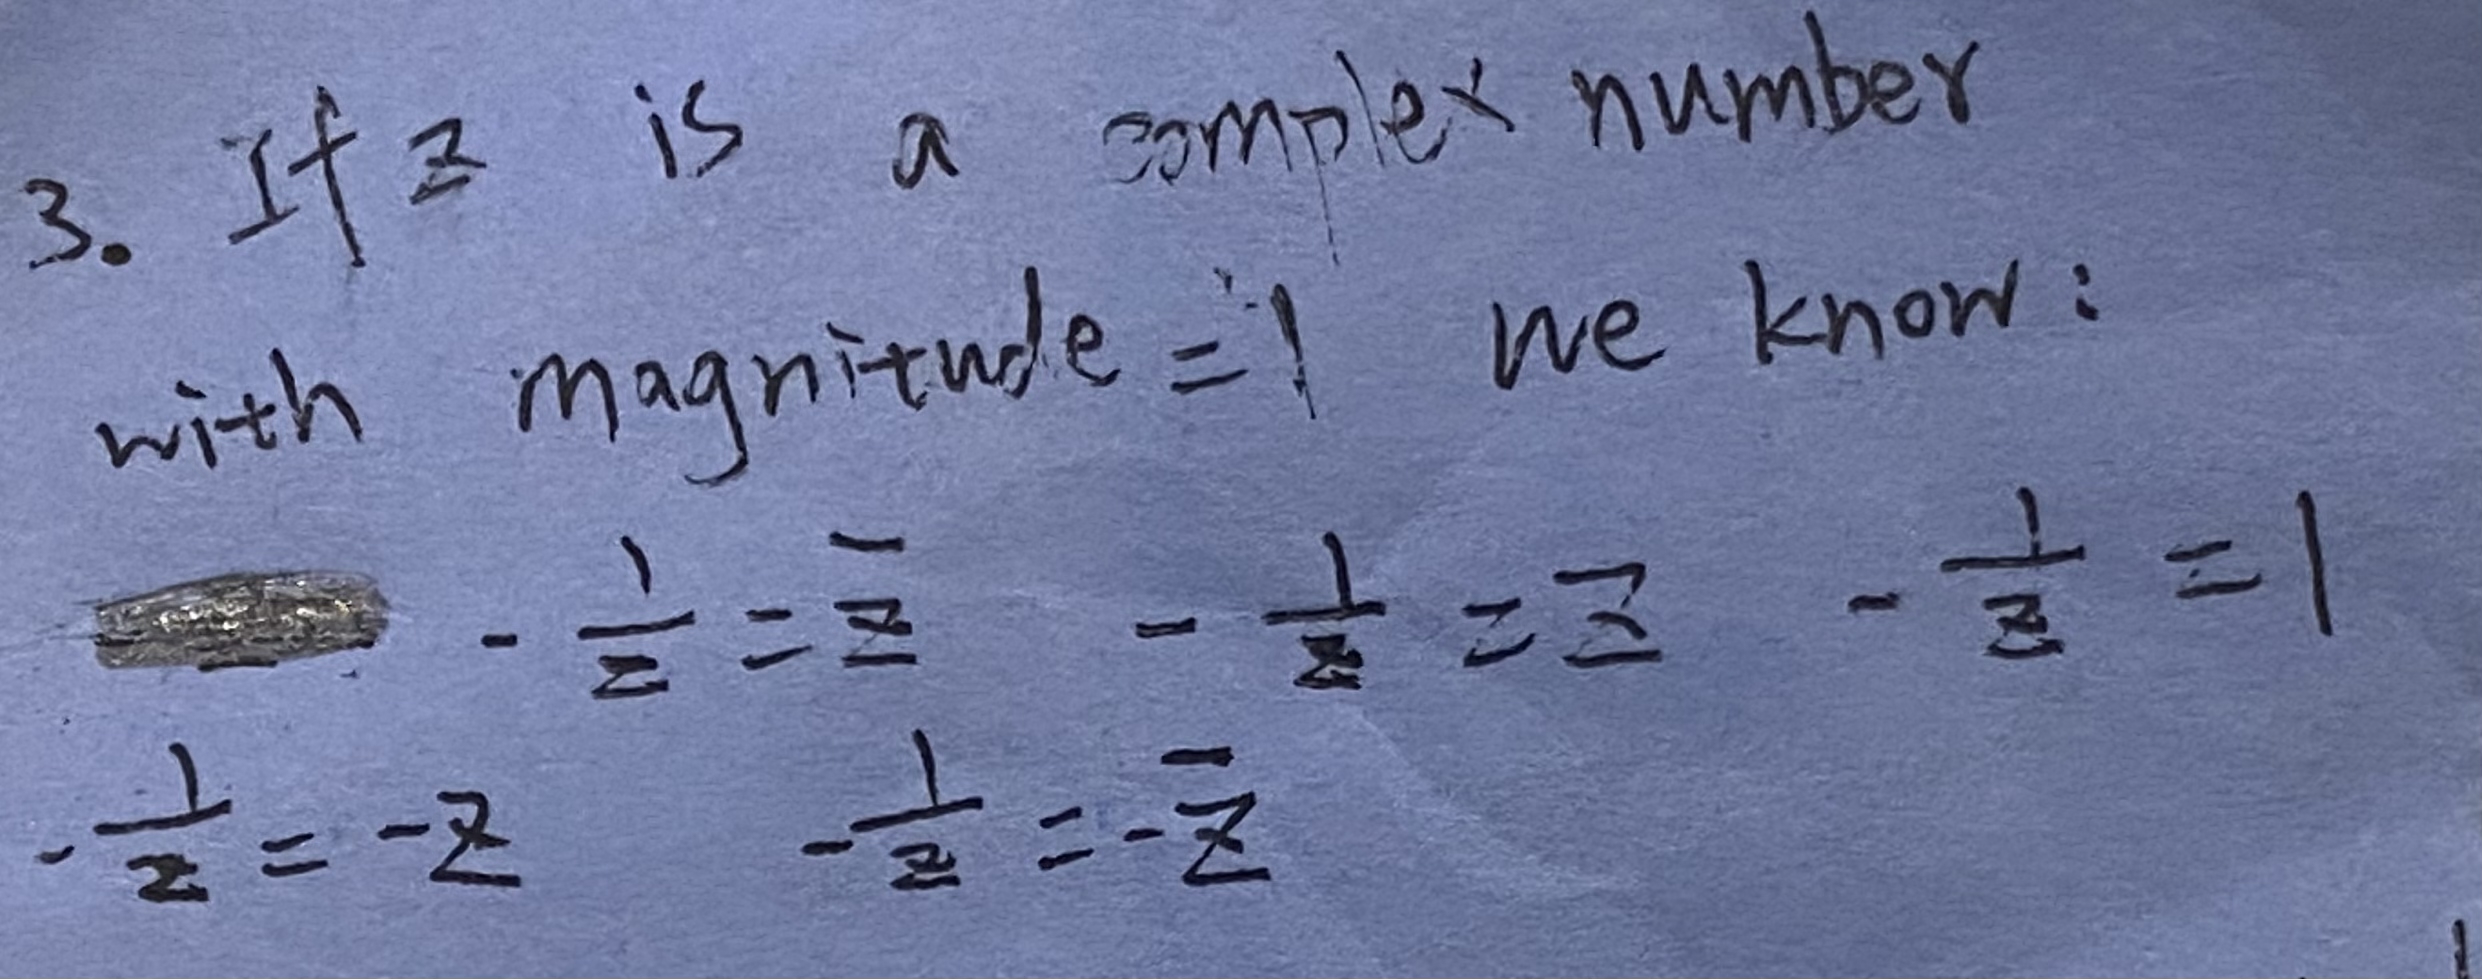 3. If z is a complex number
with magnitude = 1 we know:
- 1/z = z̄ - 1/z = z - 1/z = 1
- 1/z = -z - 1/z = -z̄